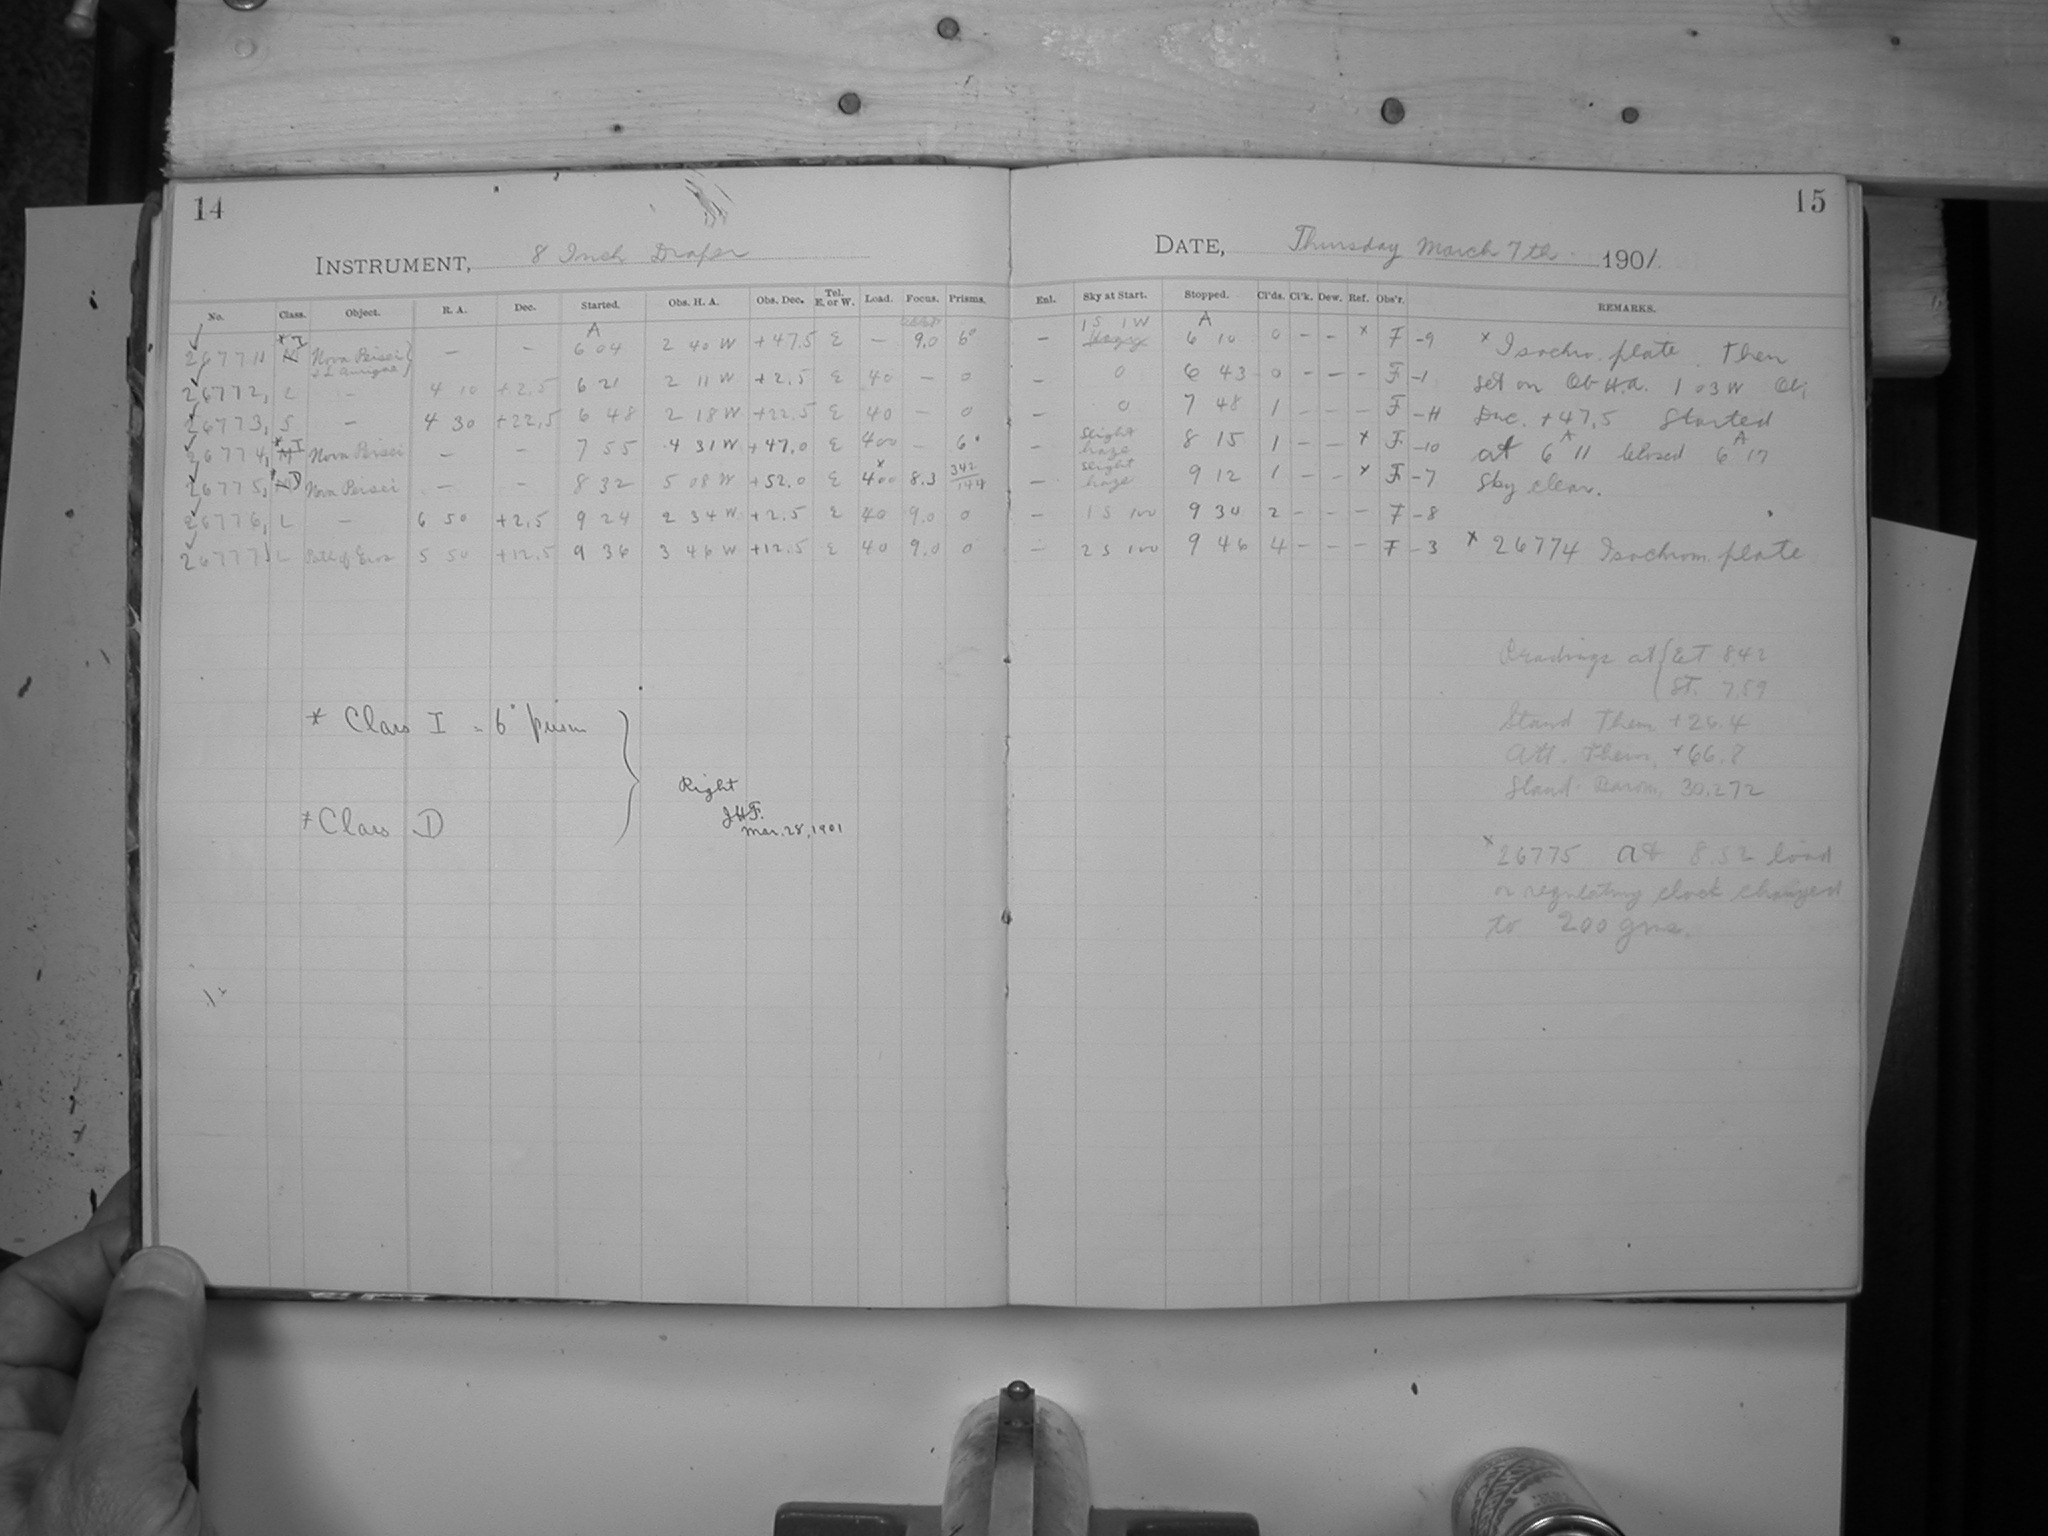 14
INSTRUMENT, 8 Inch Draper
No. Class. Object. R. A. Dec. Started. Obs. H. A. Obs. Dec. Tel. E. or W. Load. Focus. Prisms.
26771 I Nova Persei & L Aurigae — — A 6 04 2 40 W +47.5 E — 9.0 6°
26772, L — 4 10 +2.5 6 21 2 11 W +2.5 E 40 — 0
26773, S — 4 30 +22.5 6 48 2 18 W +22.5 E 40 — 0
26774, I Nova Persei — — 7 55 4 31 W +47.0 E 400 — 6°
26775, D Nova Persei — — 8 32 5 08 W +52.0 E 400 8.3 342/144
26776, L — 6 50 +2.5 9 24 2 34 W +2.5 E 40 9.0 0
26777, L Path of Eros 5 50 +12.5 9 36 3 46 W +12.5 E 40 9.0 0
* Class I = 6° prism
* Class D
Right
J.H.F.
Mar. 28, 1901
15
DATE, Thursday March 7th 1901.
Enl. Sky at Start. Stopped. Cl'ds. Cl'k. Dew. Ref. Obs'r. REMARKS.
— 1S 1W Hazy A 6 10 0 — — x F -9
— 0 6 43 0 — — — F -1
— 0 7 48 1 — — — F -H
— Slight haze 8 15 1 — — x F -10
— Slight haze 9 12 1 — — x F -7
— 1 S 100 9 30 2 — — — F -8
— 2 S 100 9 46 4 — — — F -3
x Isochro. plate. Then
set on Ob H.A. 1 03 W Ob;
Dec. +47.5 Started
at 6 A 11 closed 6 A 17
Sky clear.
x 26774 Isochrom. plate
Readings at { ET 8.42
ST. 7.59
Stand Therm +26.4
Att. Therm. +66.8
Stand. Barom. 30.272
x 26775 at 8.52 load
on regulating clock changed
to 200 gms.